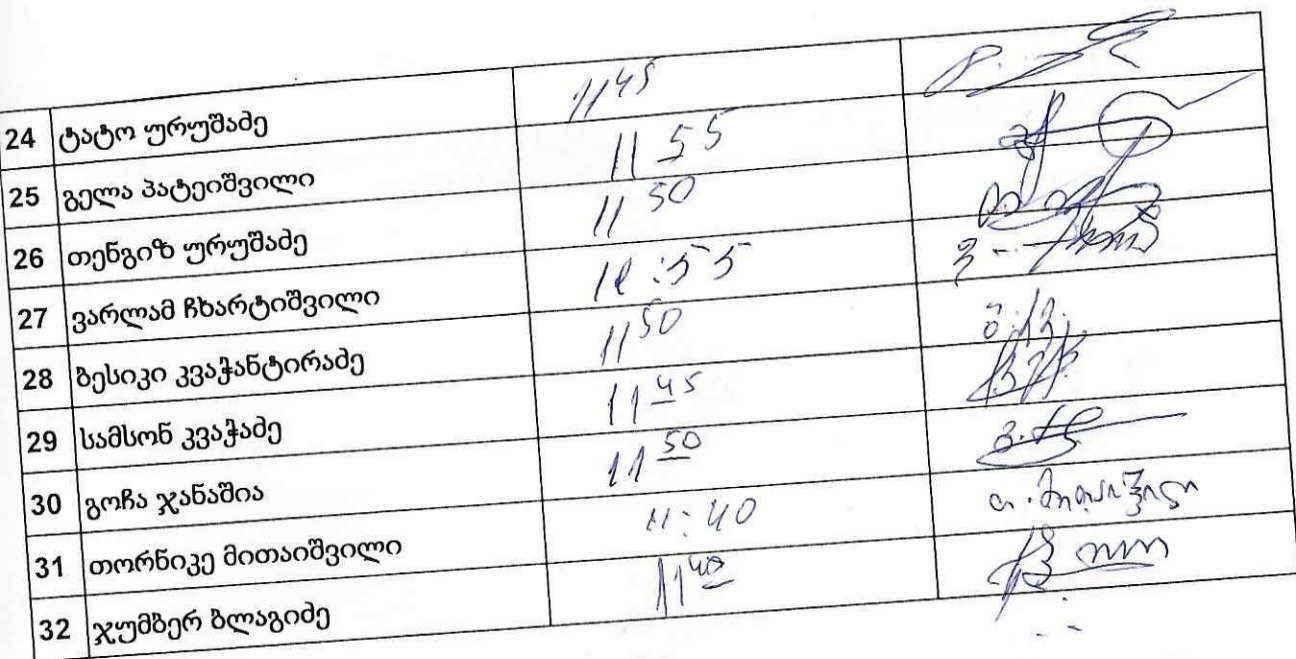 24 ტატო ურუშაძე 11 45
25 გელა პატეიშვილი 11 55
26 თენგიზ ურუშაძე 11 50
27 ვარლამ ჩხარტიშვილი :55
28 ბესიკი კვაჭანტირაძე 11 50
29 სამსონ კვაჭაძე 11 45
30 გოჩა ჯანაშია 11 50
31 თორნიკე მითაიშვილი 11:40 თ. მითაიშვილი
32 ჯუმბერ ბლაგიძე 11 40